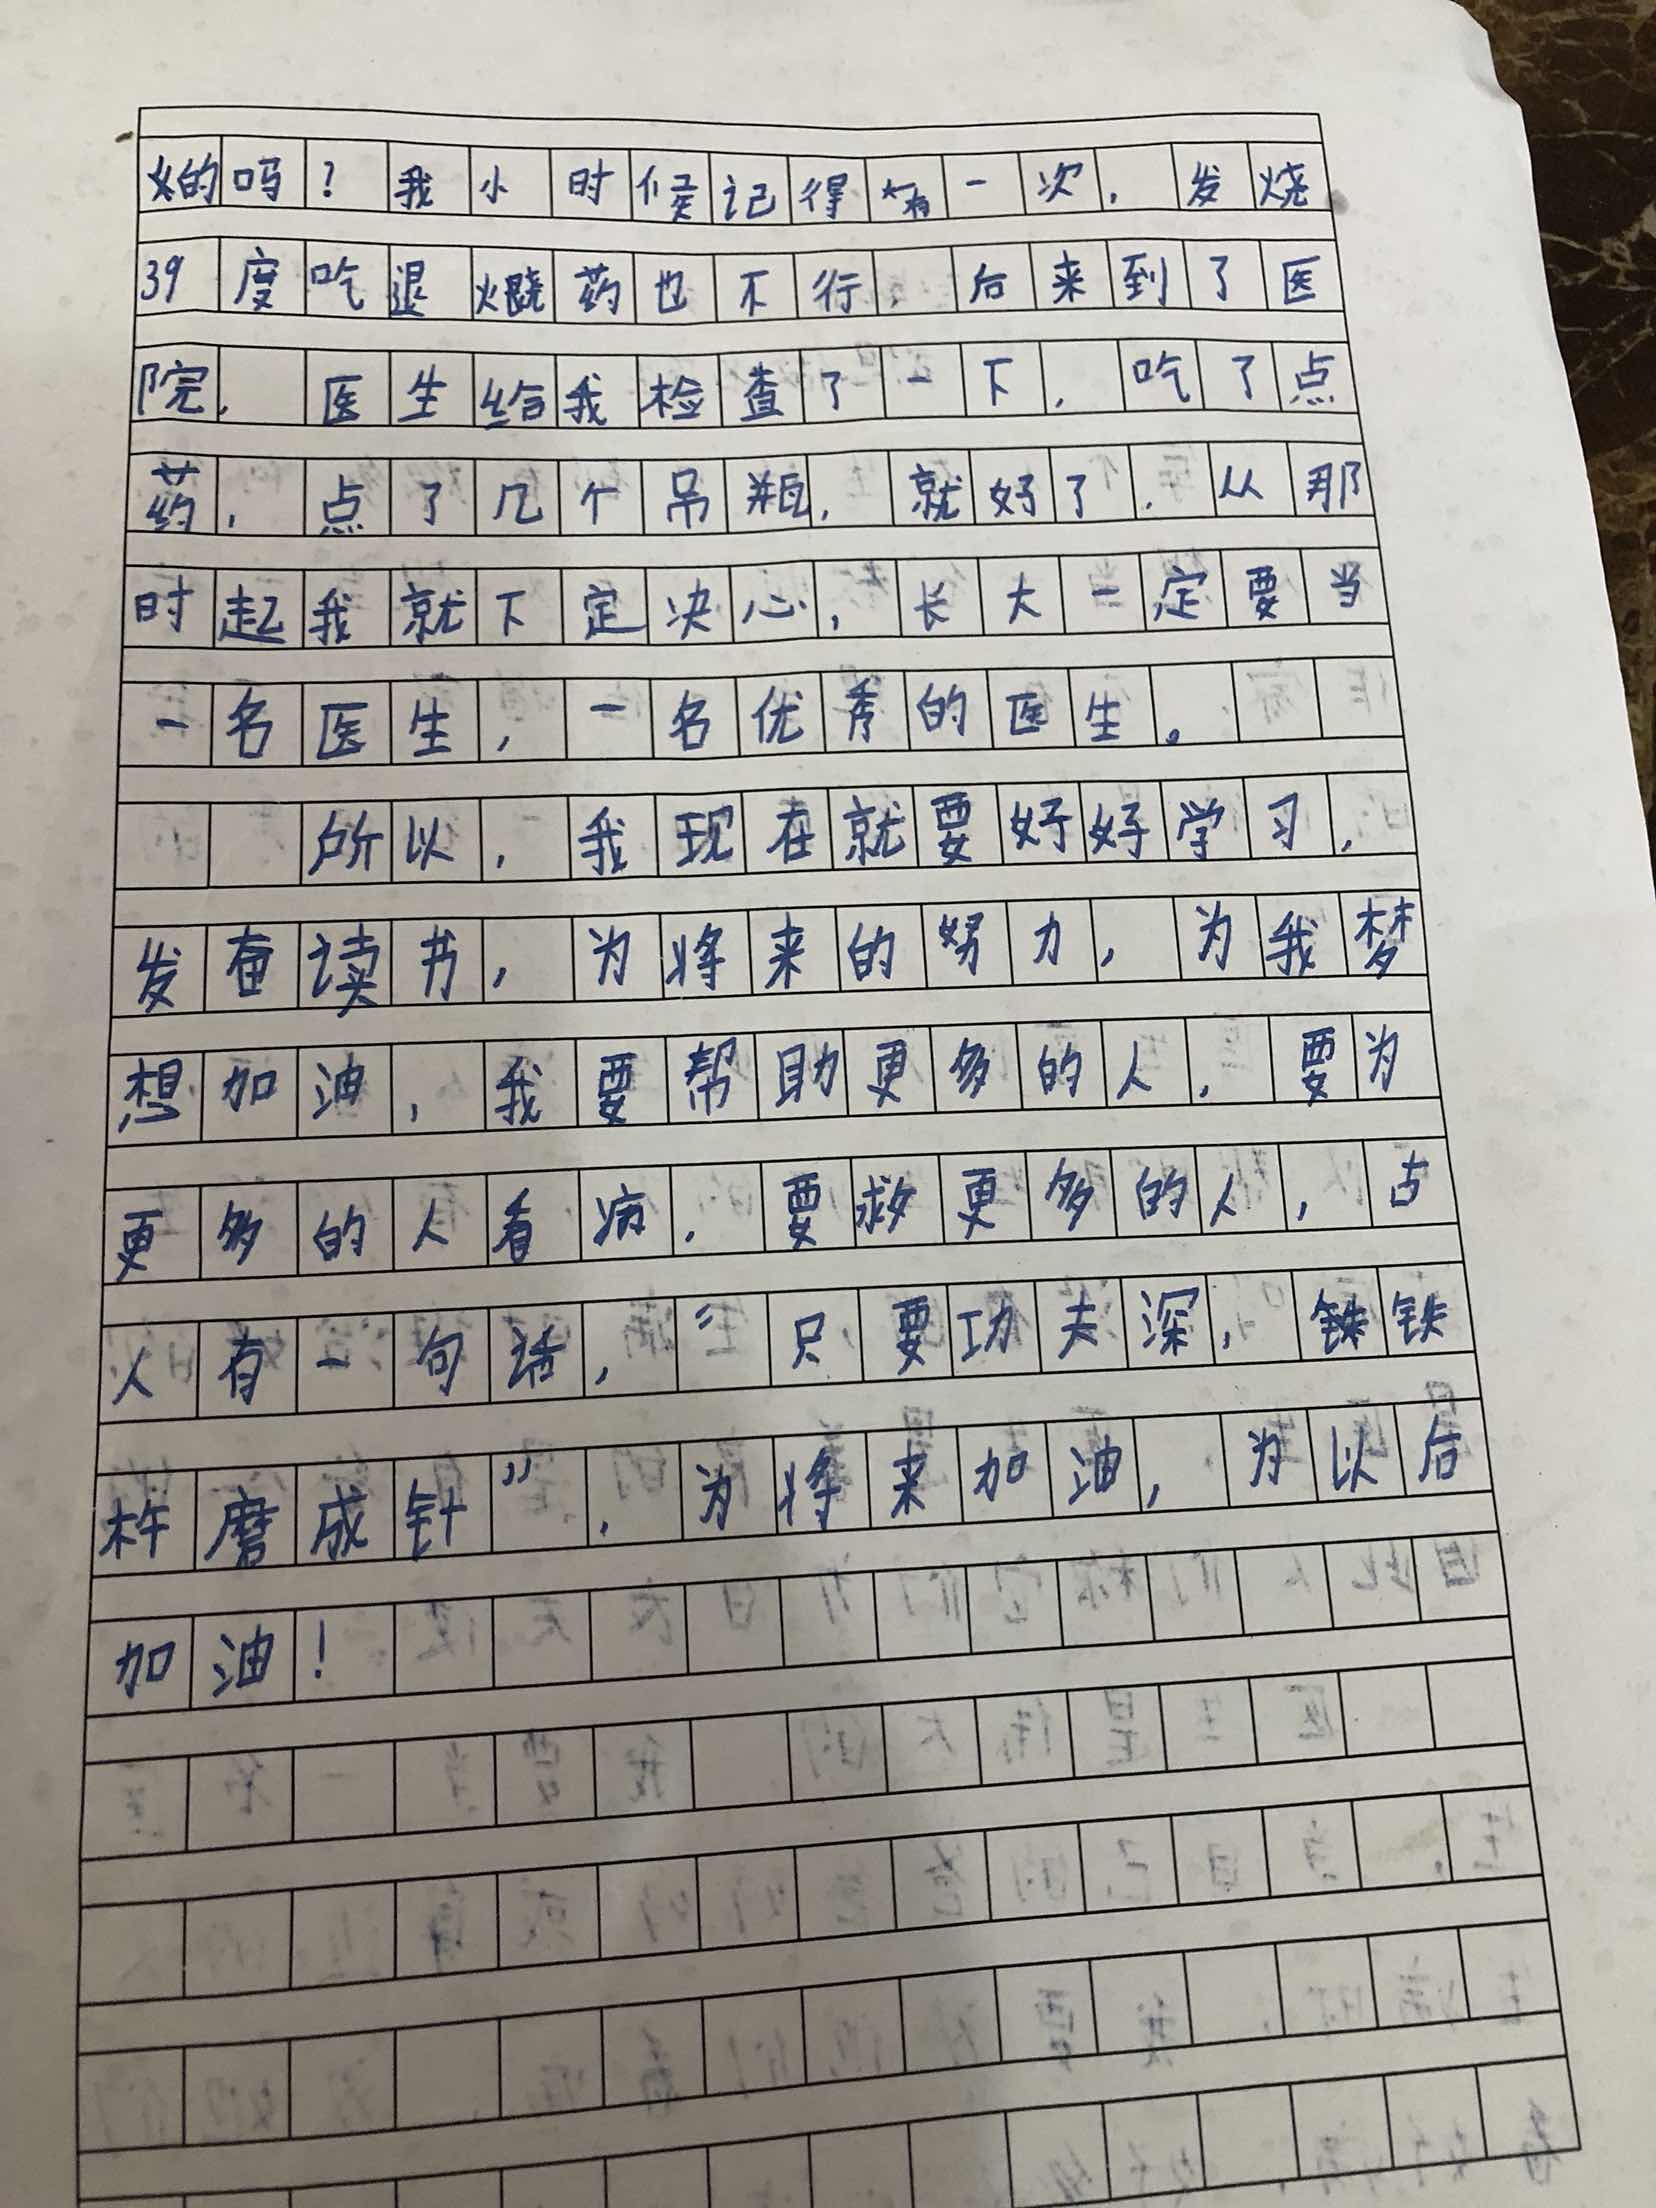 的吗？我小时候记得有一次，发烧
39度吃退烧药也不行，后来到了医
院，医生给我检查了一下，吃了点
药，点了几个吊瓶，就好了，从那
时起我就下定决心，长大一定要当
一名医生，一名优秀的医生。
所以，我现在就要好好学习，
发奋读书，为将来的努力，为我梦
想加油，我要帮助更多的人，要为
更多的人看病，要救更多的人，古
人有一句话，“只要功夫深，铁铁
杵磨成针”，为将来加油，为以后
加油！